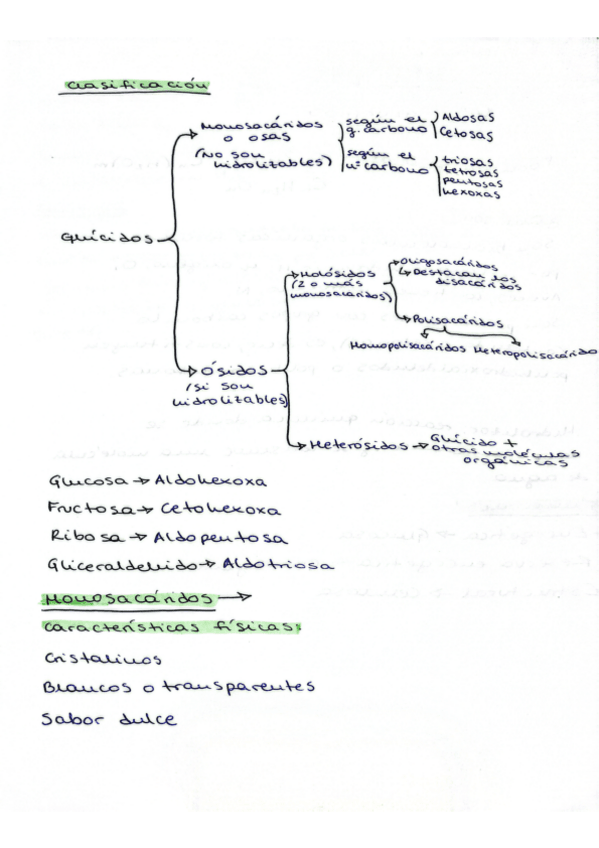 Clasificación
Monosacáridos
o osas
(No son
hidrolizables)
según el
g. carbono
Aldosas
Cetosas
según el
nº carbono
triosas
tetrosas
pentosas
hexoxas
Glúcidos
Holósidos
(2 o más
monosacáridos)
Oligosacáridos
↳ Destacan los
disacáridos
Polisacáridos
Homopolisacáridos Heteropolisacárido
Ósidos
(si son
hidrolizables)
Heterósidos → Glúcido +
otras moléculas
orgánicas
Glucosa → Aldohexoxa
Fructosa → Cetohexoxa
Ribosa → Aldopentosa
Gliceraldehido → Aldotriosa
Monosacáridos →
Características físicas:
Cristalinos
Blancos o transparentes
Sabor dulce